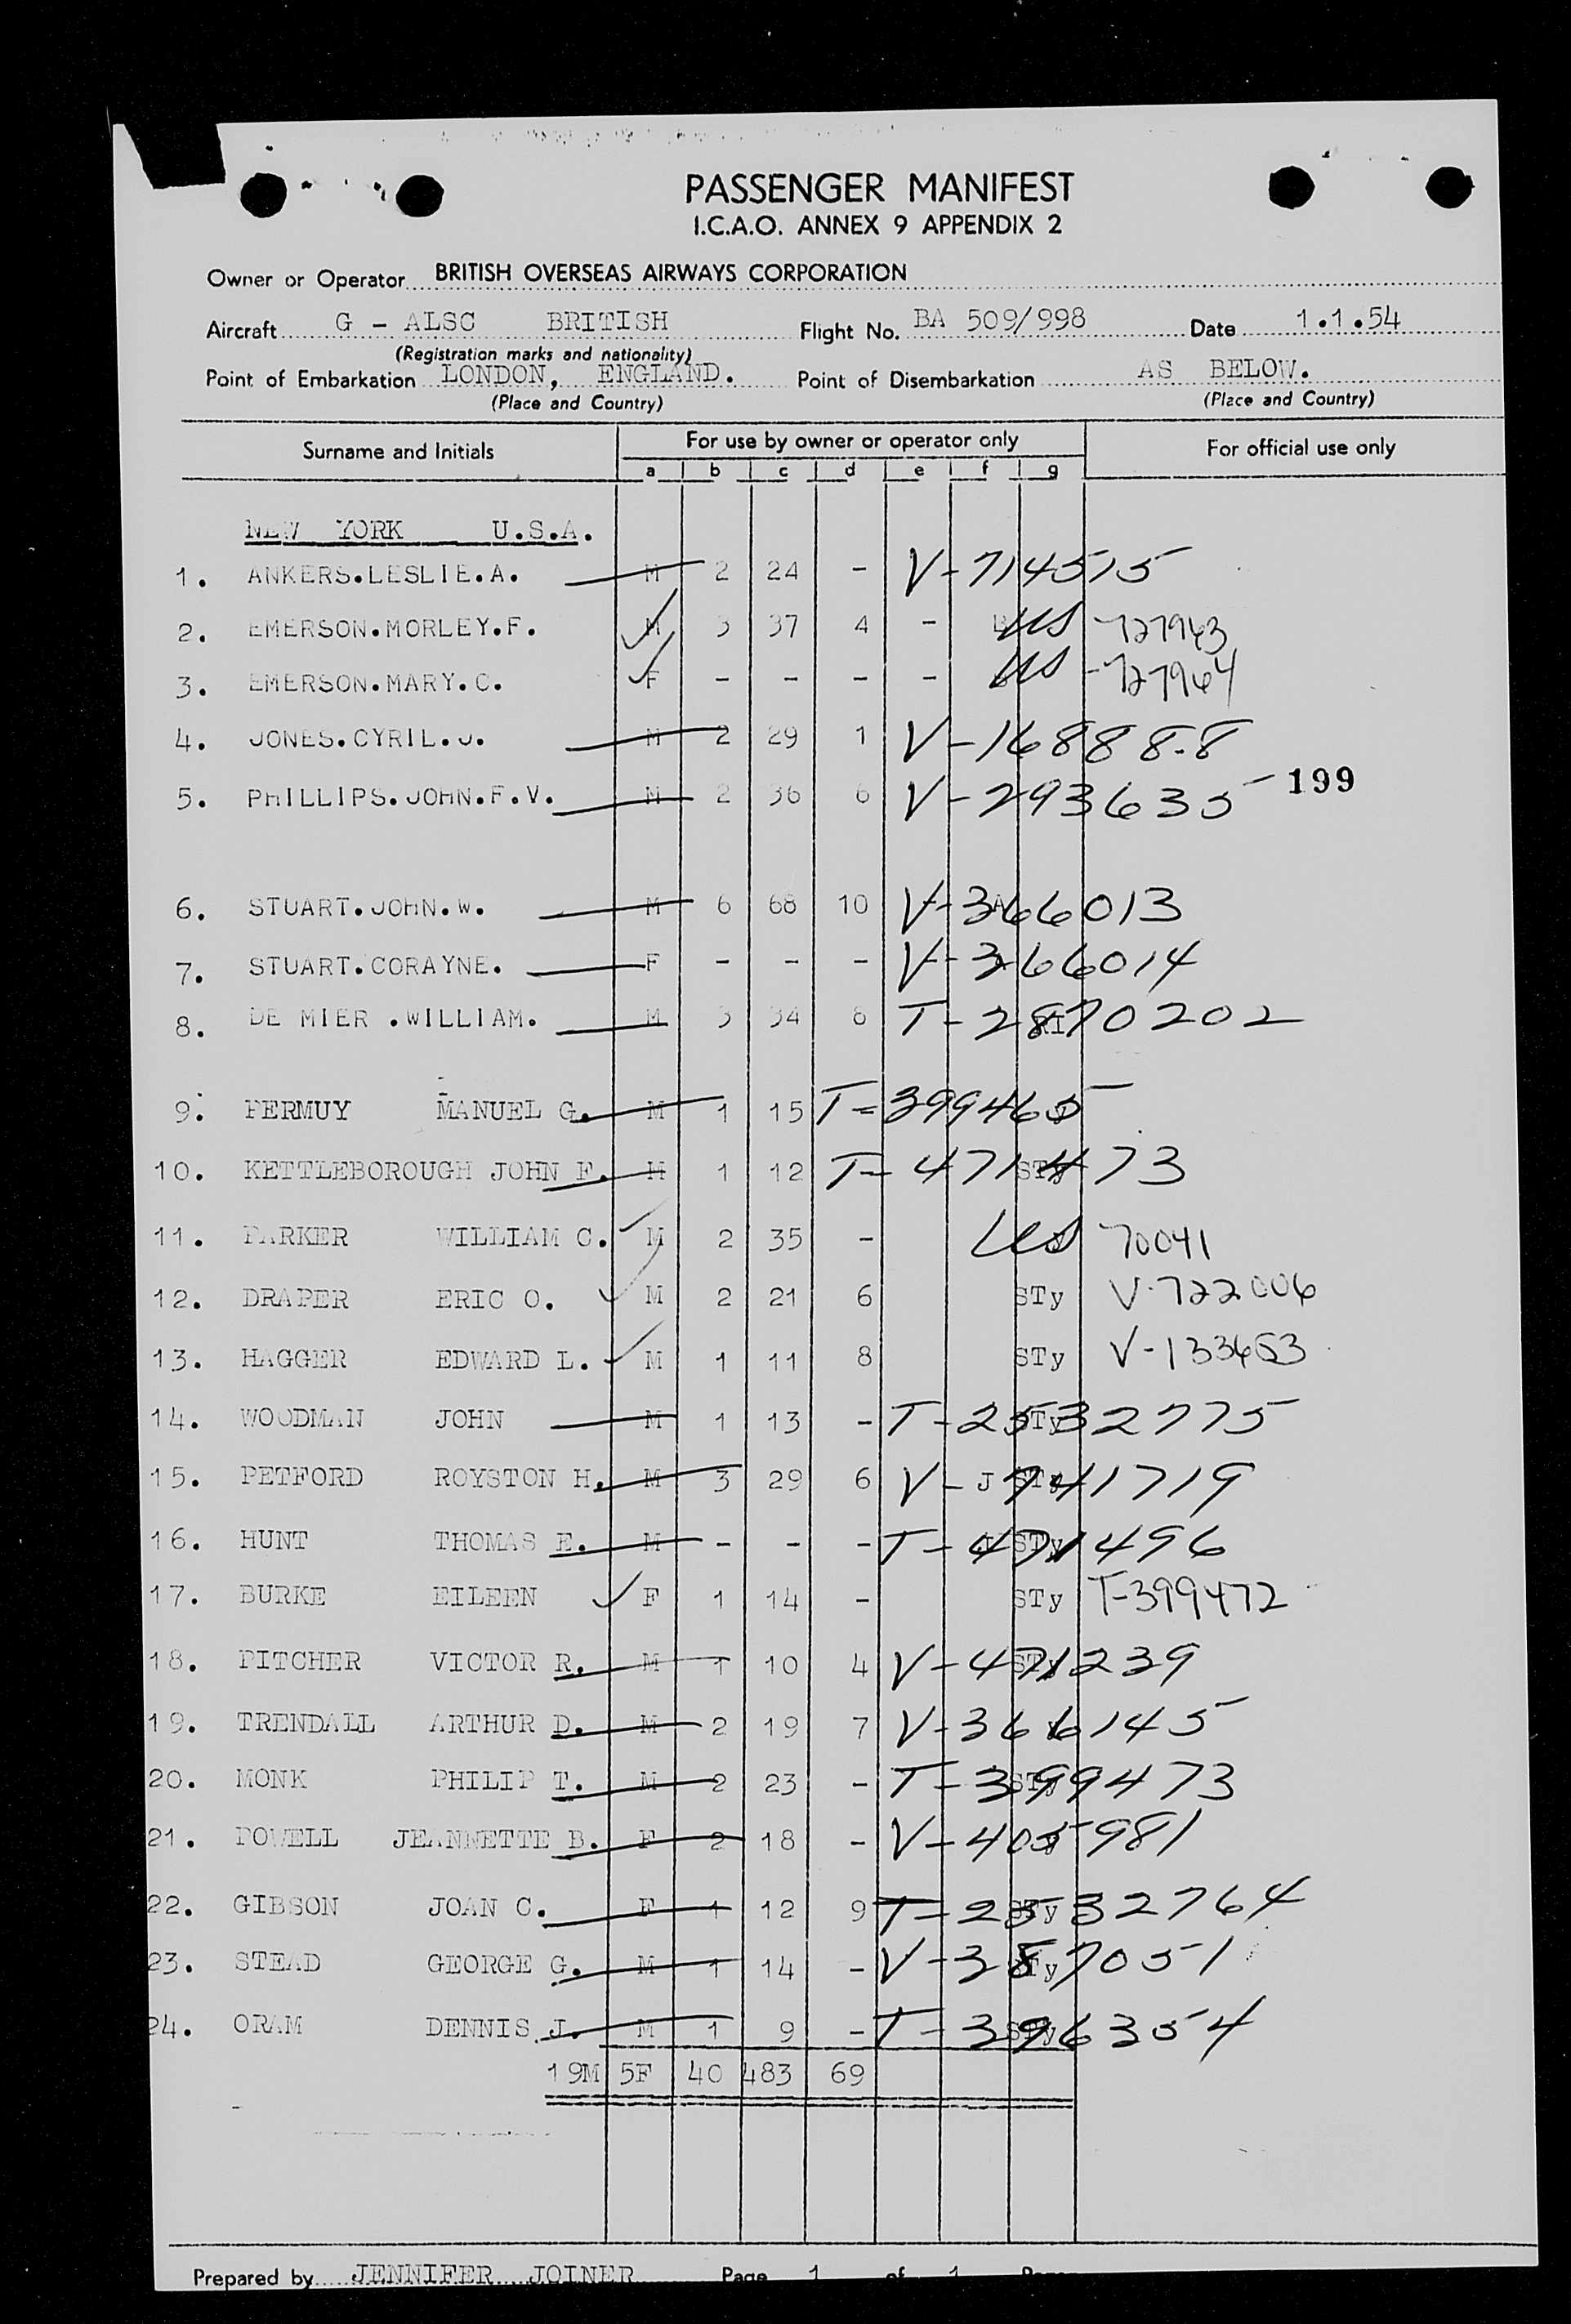 PASSENGER MANIFEST
I.C.A.O. ANNEX 9 APPENDIX 2
Owner or Operator BRITISH OVERSEAS AIRWAYS CORPORATION
Aircraft G - ALSC BRITISH Flight No. BA 509/998 Date 1.1.54
(Registration marks and nationality)
Point of Embarkation LONDON, ENGLAND. Point of Disembarkation AS BELOW.
(Place and Country) (Place and Country)
Surname and Initials For use by owner or operator only For official use only
a b c d e f g
NEW YORK U.S.A.
1. ANKERS.LESLIE.A. M 2 24 - V-714515
2. EMERSON.MORLEY.F. M 3 37 4 - US -727943
3. EMERSON.MARY.C. F - - - - US -727964
4. JONES.CYRIL.J. M 2 29 1 V-168888
5. PHILLIPS.JOHN.F.V. M 2 36 6 V-293635 199
6. STUART.JOHN.W. M 6 68 10 V-366013
7. STUART.CORAYNE. F - - - V-366014
8. DE MIER .WILLIAM. M 3 34 8 T-2870202
9. FERMUY MANUEL G. M 1 15 T-399465
10. KETTLEBOROUGH JOHN F. M 1 12 T-471473
11. PARKER WILLIAM C. M 2 35 - US 70041
12. DRAPER ERIC O. M 2 21 6 STy V-722006
13. HAGGER EDWARD L. M 1 11 8 STy V-133653
14. WOODMAN JOHN M 1 13 - T-2532775
15. PETFORD ROYSTON H. M 3 29 6 V-741719
16. HUNT THOMAS E. M - - - T-471496
17. BURKE EILEEN F 1 14 - STy T-399472
18. PITCHER VICTOR R. M 1 10 4 V-471239
19. TRENDALL ARTHUR D. M 2 19 7 V-366145
20. MONK PHILIP T. M 2 23 - T-399473
21. POWELL JEANNETTE B. F 2 18 - V-405981
22. GIBSON JOAN C. F 1 12 9 T-2532764
23. STEAD GEORGE G. M 1 14 - V-387051
24. ORAM DENNIS J. M 1 9 - T-396354
19M 5F 40 483 69
Prepared by JENNIFER JOINER Page 1 of 1